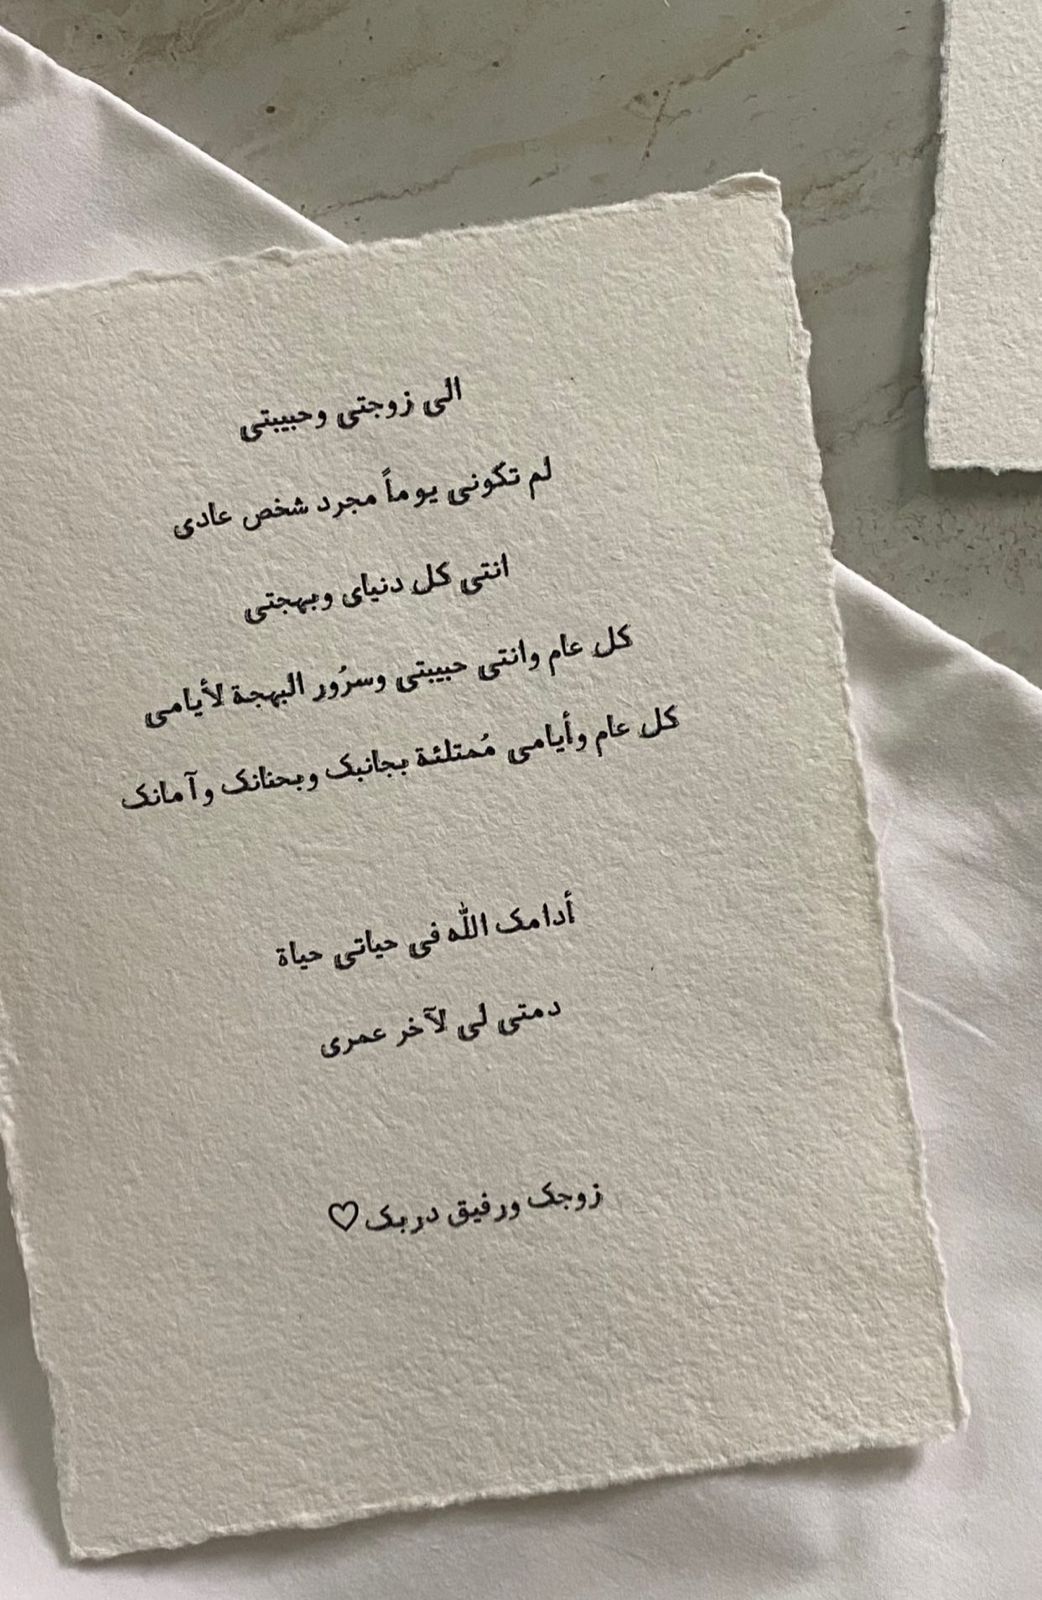 الى زوجتي وحبيبتي
لم تكوني يوماً مجرد شخص عادي
انتي كل دنياي وبهجتي
كل عام وانتي حبيبتي وسرُور البهجة لأيامي
كل عام وأيامي مُمتلئة بجانبك وبحنانك وآمانك
أدامك الله في حياتي حياة
دمتي لي لآخر عمري
زوجك ورفيق دربك♡